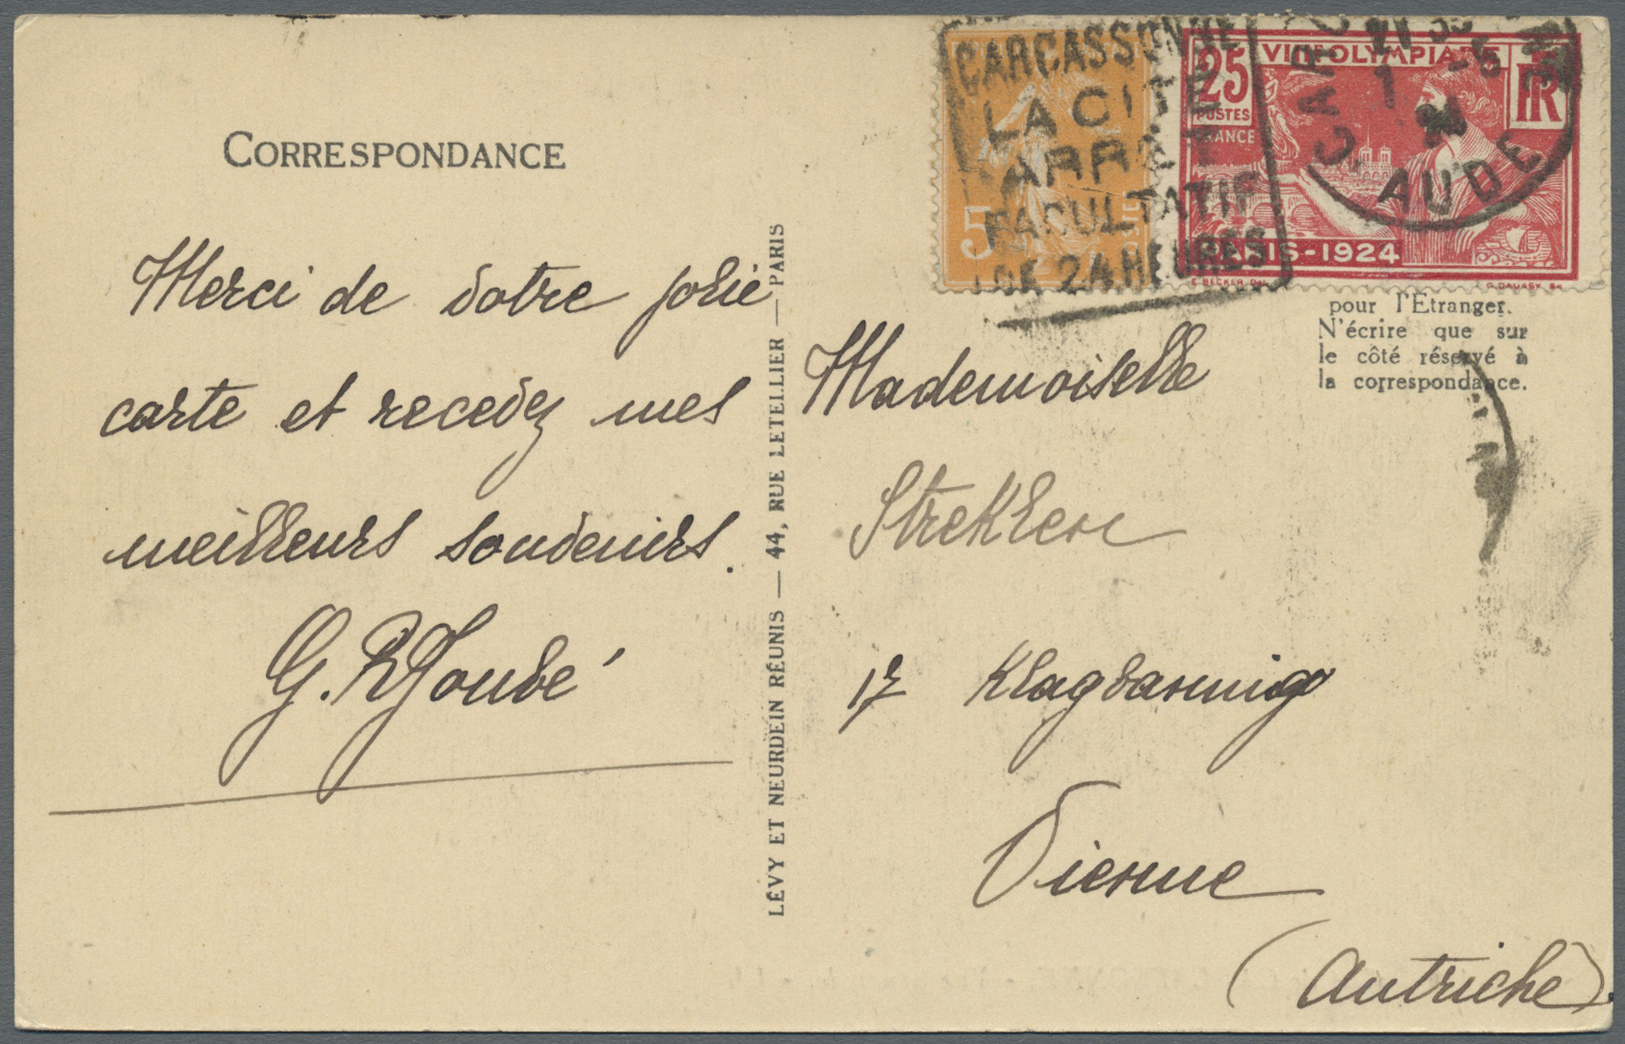 CORRESPONDANCE
Merci de votre jolie
carte et recevez mes
meilleurs souvenirs.
LÉVY ET NEURDEIN RÉUNIS — 44, RUE LETELLIER — PARIS
CARCASSONNE
LA CITE
ARRÊT
FACULTATIF
DE 24 HEURES
5
25
VIIIe OLYMPIADE
RF
POSTES
FRANCE
PARIS-1924
AUDE
pour l'Etranger.
N'écrire que sur
le côté réservé à
la correspondance.
Mademoiselle
17
Vienne
(Autriche).